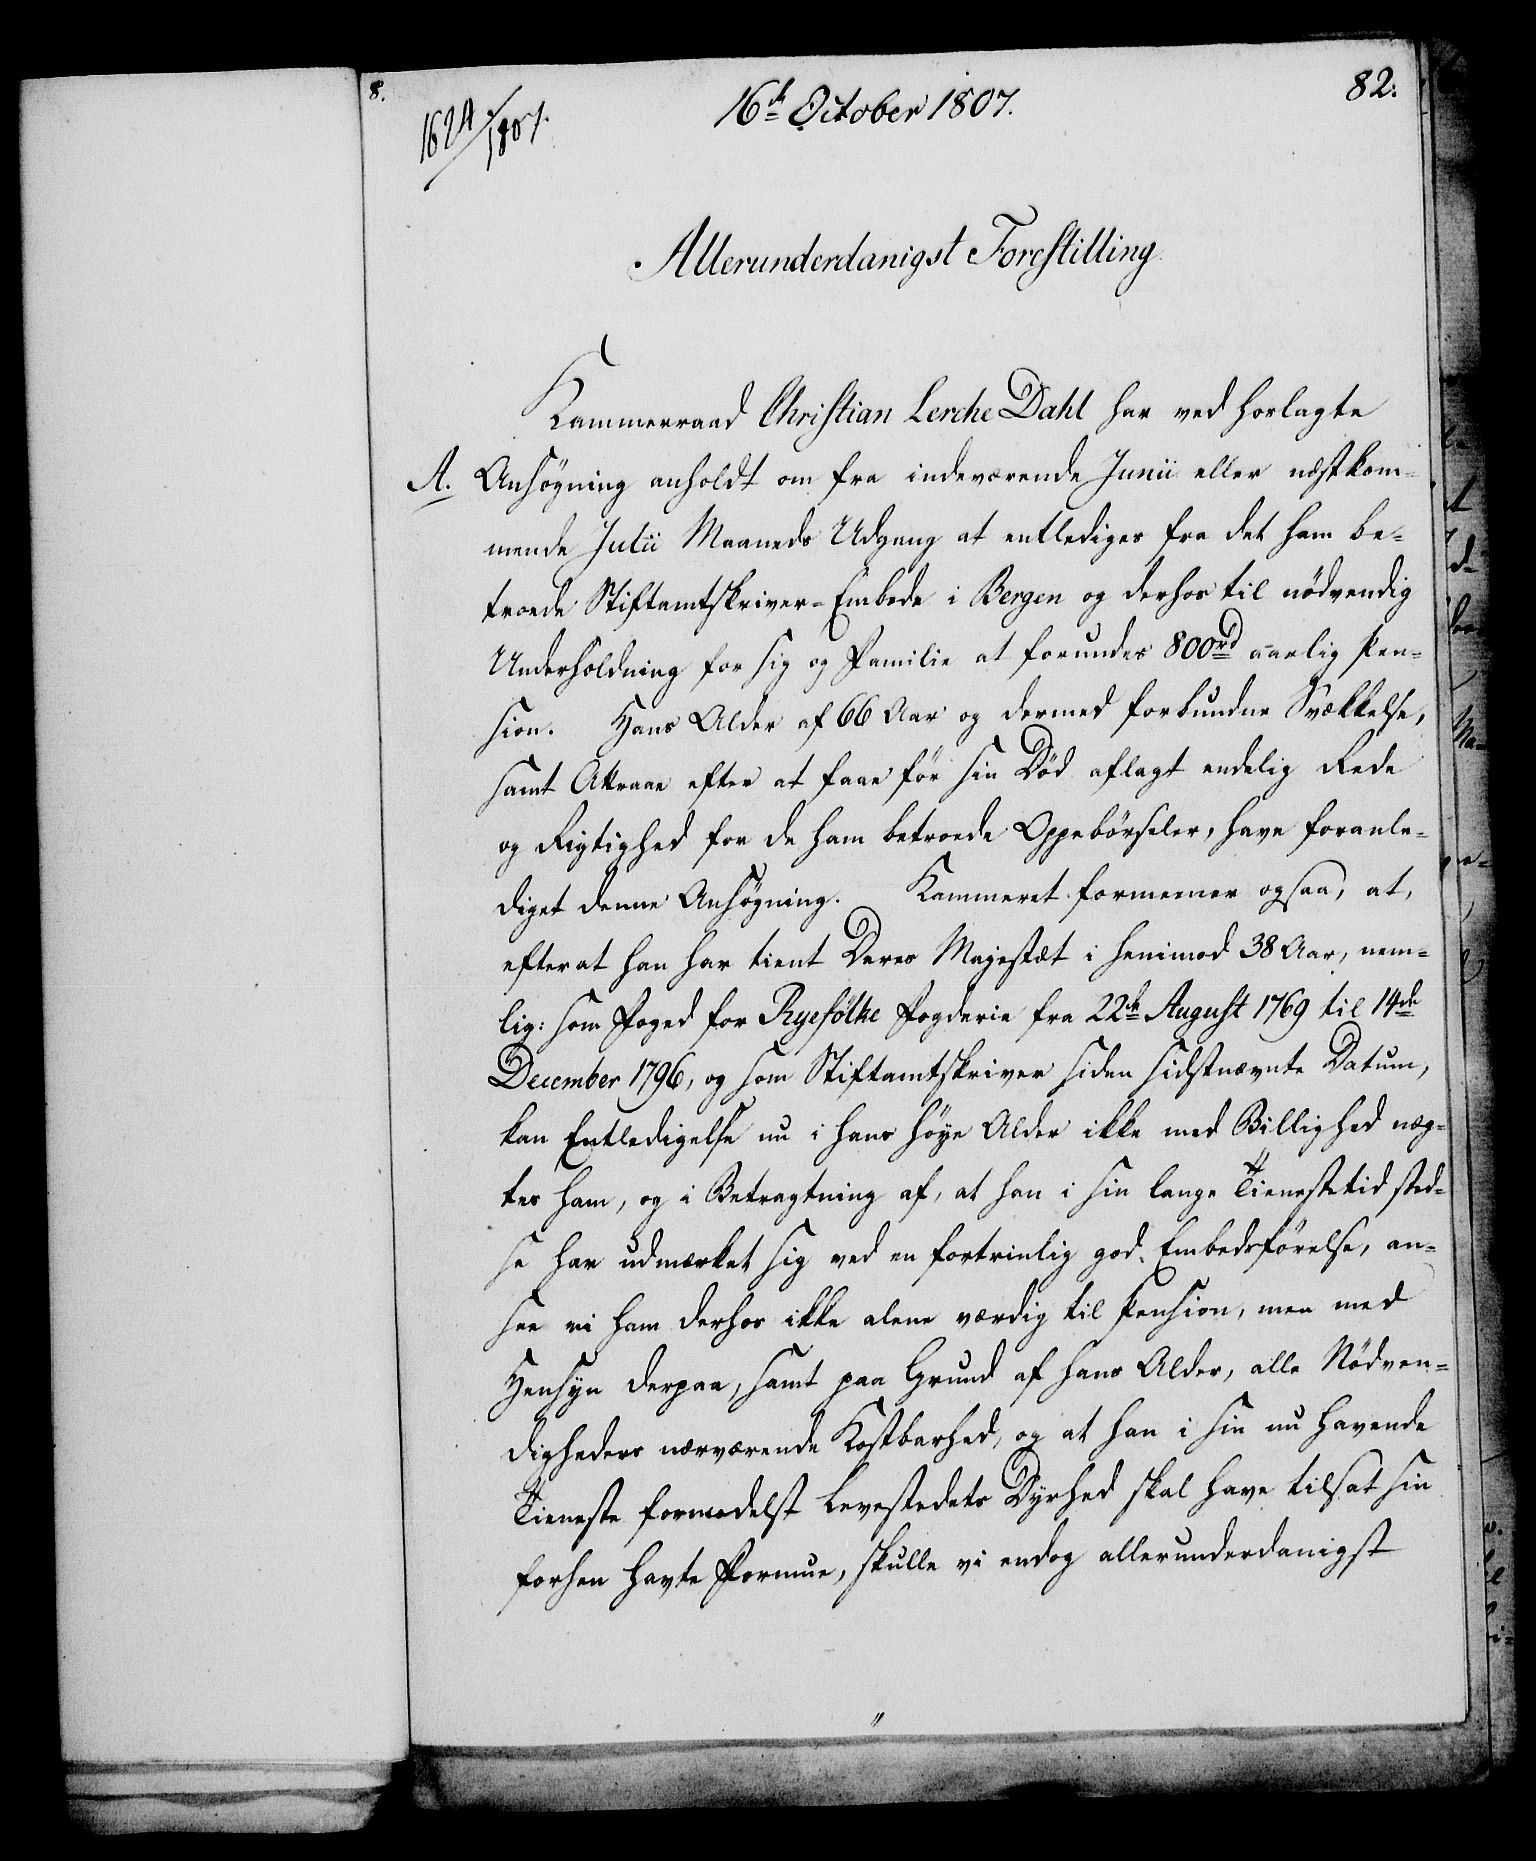 8.
1624/1807.
16de October 1807.
82.
Allerunderdanigst Forestilling
Kammerraad Christian Lerche Dahl har ved hoslagte
A. Ansögning anholdt om fra indeværende Junii eller næstkom-
mende Julii Maaneds Udgang at entlediges fra det ham be-
troede Stiftamtskriver-Embede i Bergen og derhos til nödvendig
Underholdning for sig og Familie at forundes 800rd aarlig Pen-
sion. Hans Alder af 66 Aar og dermed forbundne Svækkelse,
samt Attraae efter at faae för sin Död aflagt endelig Rede
og Rigtighed for de ham betroede Oppebörseler, have foranle-
diget denne Ansögning. Kammeret formener ogsaa, at,
efterat han har tient Deres Majestæt i henimod 38 Aar, nem-
lig: som Foged for Ryefölke Fogderie fra 22de August 1769 til 14de
December 1796, og som Stiftamtskriver siden sidstnævnte Datum,
kan Entledigelse nu i hans höye Alder ikke med Billighed næg-
tes ham, og i Betragtning af, at han i sin lange Tienestetid sted-
se har udmærket sig ved en fortrinlig god Embedsförelse, an-
see vi ham derhos ikke alene værdig til Pension, men med
Hensyn derpaa, samt paa Grund af hans Alder, alle Nödven-
digheders nærværende Kostbarhed, og at han i sin nu havende
Tieneste formedelst Levestedets Dyrhed skal have tilsat sin
forhen havte Formue, skulle vi endog allerunderdanigst